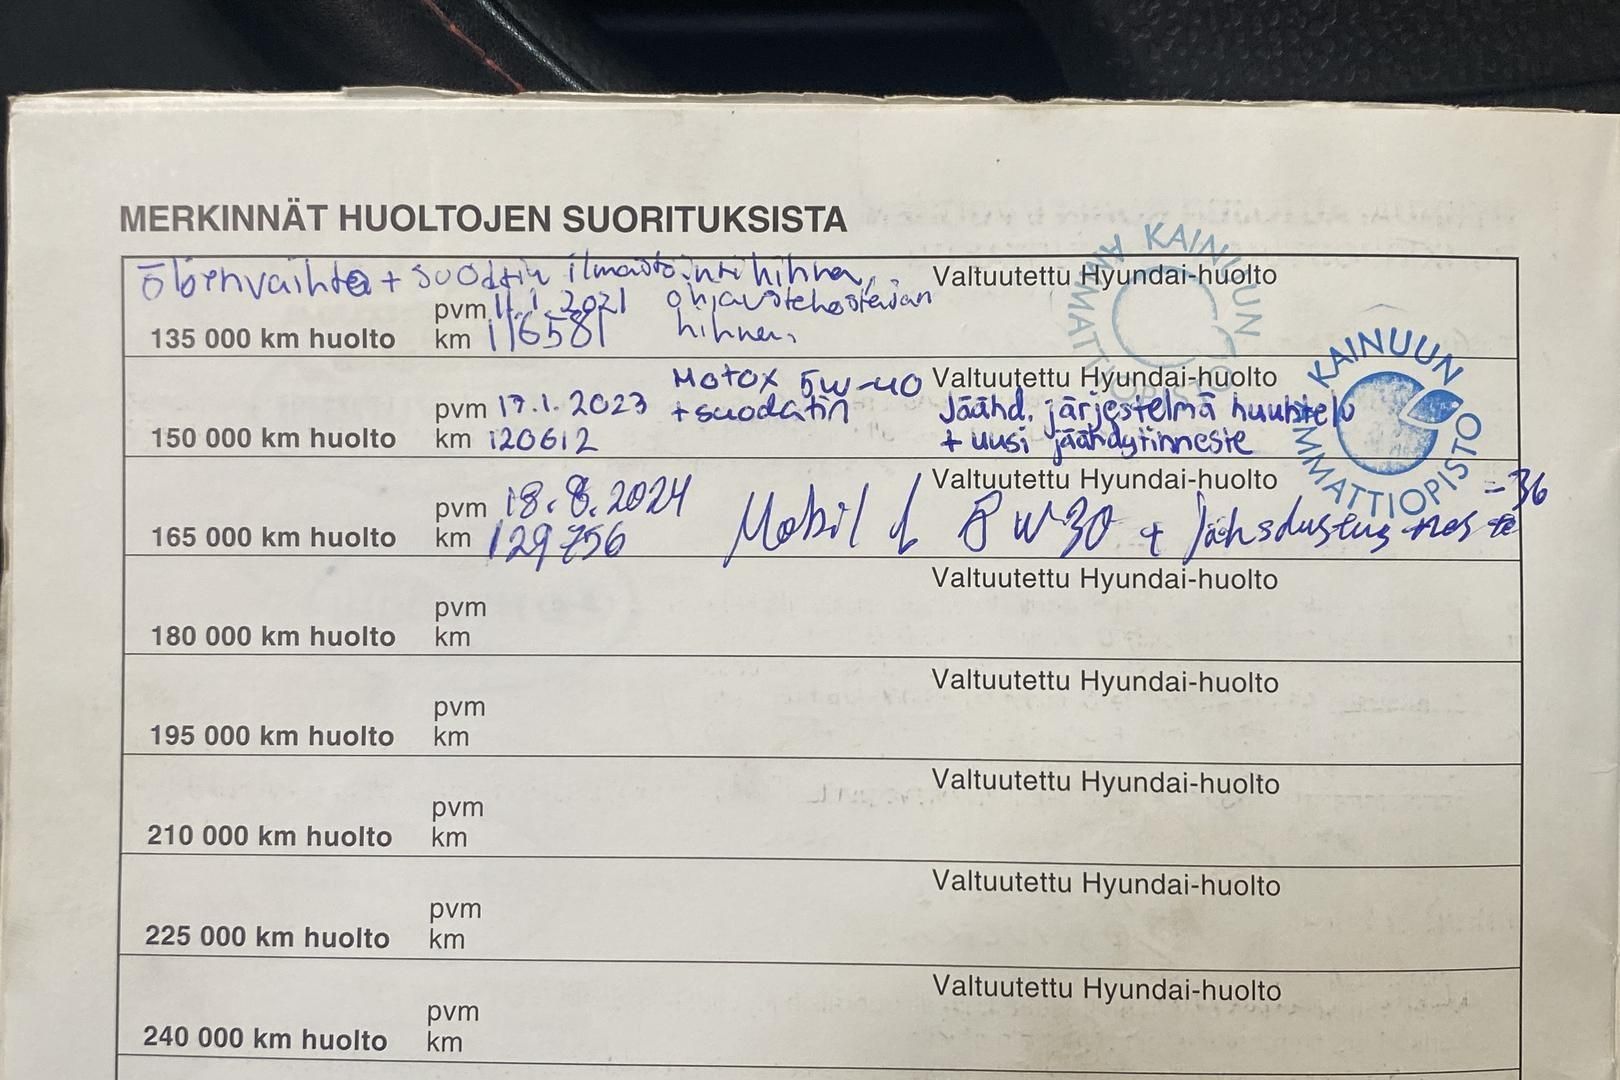 MERKINNÄT HUOLTOJEN SUORITUKSISTA
Öljynvaihto + suodatin ilmastointi hihna,
Valtuutettu Hyundai-huolto
pvm 11.1.2021 ohjaustehostajan
135 000 km huolto km 116581 hihna,
KAINUUN AMMATTIOPISTO
Motox 5w-40 Valtuutettu Hyundai-huolto
pvm 17.1.2023 + suodatin Jäähd. järjestelmä huuhtelu
150 000 km huolto km 120612 + uusi jäähdytinneste
KAINUUN AMMATTIOPISTO
Valtuutettu Hyundai-huolto
pvm 18.8.2024 -36
165 000 km huolto km 129756 Mobil w30 +
Valtuutettu Hyundai-huolto
pvm
180 000 km huolto km
Valtuutettu Hyundai-huolto
pvm
195 000 km huolto km
Valtuutettu Hyundai-huolto
pvm
210 000 km huolto km
Valtuutettu Hyundai-huolto
pvm
225 000 km huolto km
Valtuutettu Hyundai-huolto
pvm
240 000 km huolto km